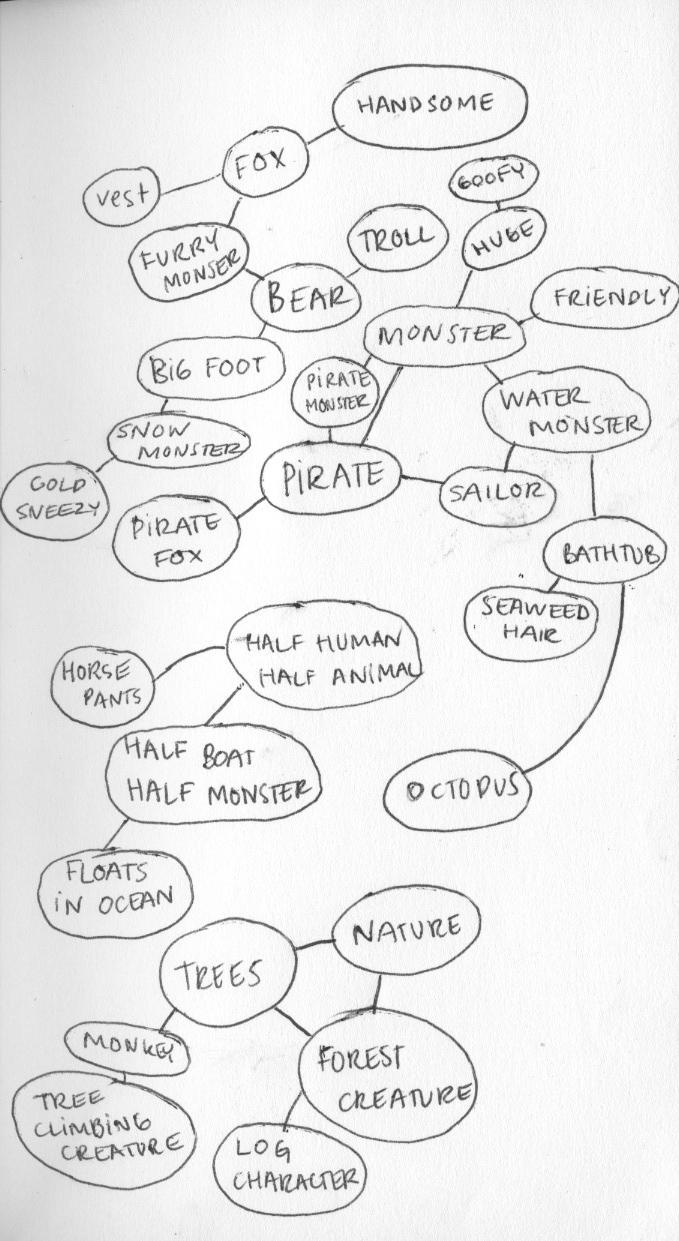 HANDSOME
FOX
vest
GOOFY
TROLL
HUGE
FURRY
MONSER
BEAR
FRIENDLY
MONSTER
BIG FOOT
PIRATE
MONSTER
WATER
MONSTER
SNOW
MONSTER
PIRATE
SAILOR
COLD
SNEEZY
PIRATE
FOX
BATHTUB
SEAWEED
HAIR
HALF HUMAN
HALF ANIMAL
HORSE
PANTS
HALF BOAT
HALF MONSTER
OCTOPUS
FLOATS
IN OCEAN
NATURE
TREES
MONKEY
FOREST
CREATURE
TREE
CLIMBING
CREATURE
LOG
CHARACTER